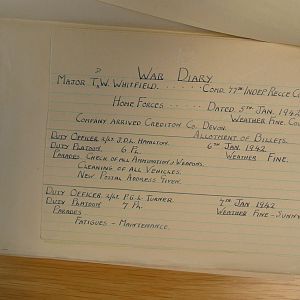 War Diary
Major T.W. Whitfield. ....... Comd. 77th Indep Recce Co
Home Forces ....... Dated. 5th Jan. 1942
Weather Fine. Co
Company Arrived Crediton Co. Devon.
Allotment of Billets.
Duty Officer 2/Lt J.D.L. Hamilton. 6th Jan. 1942
Duty Platoon 6 Pl. Weather Fine.
Parades Check of all Ammunition & Weapons.
Cleaning of all Vehicles.
New Postal Address Given.
Duty Officer. 2/Lt P.G.L. Turner. 7th Jan 1942
Duty Platoon 7 Pl. Weather Fine - Sunny
Parades
Fatigues - Maintenance.